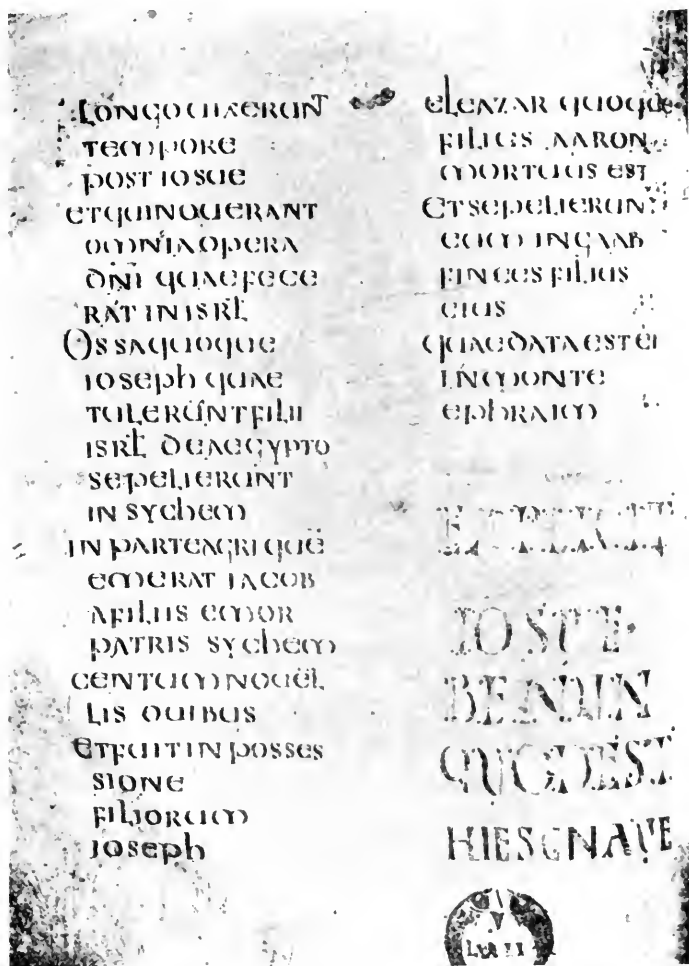 LONGO UIXERUNT
TEMPORE
POST IOSUE
ET QUI NOUERANT
OMNIA OPERA
DNI QUAE FECE
RAT IN ISRL
OSSA QUOQUE
IOSEPH QUAE
TULERUNT FILII
ISRL DE AEGYPTO
SEPELIERUNT
IN SYCHEM
IN PARTE AGRI QUE
EMERAT IACOB
A FILIIS EMOR
PATRIS SYCHEM
CENTUM NOUEL
LIS OUIBUS
ET FUIT IN POSSES
SIONE
FILIORUM
IOSEPH
ELEAZAR QUOQUE
FILIUS AARON
MORTUUS EST
ET SEPELIERUNT
EUM IN GAAB
FINEES FILIUS
EIUS
QUAE DATA EST EI
IN MONTE
EPHRAIM
IOSUE
BENNUN
QUOD EST
HIESUNAUE